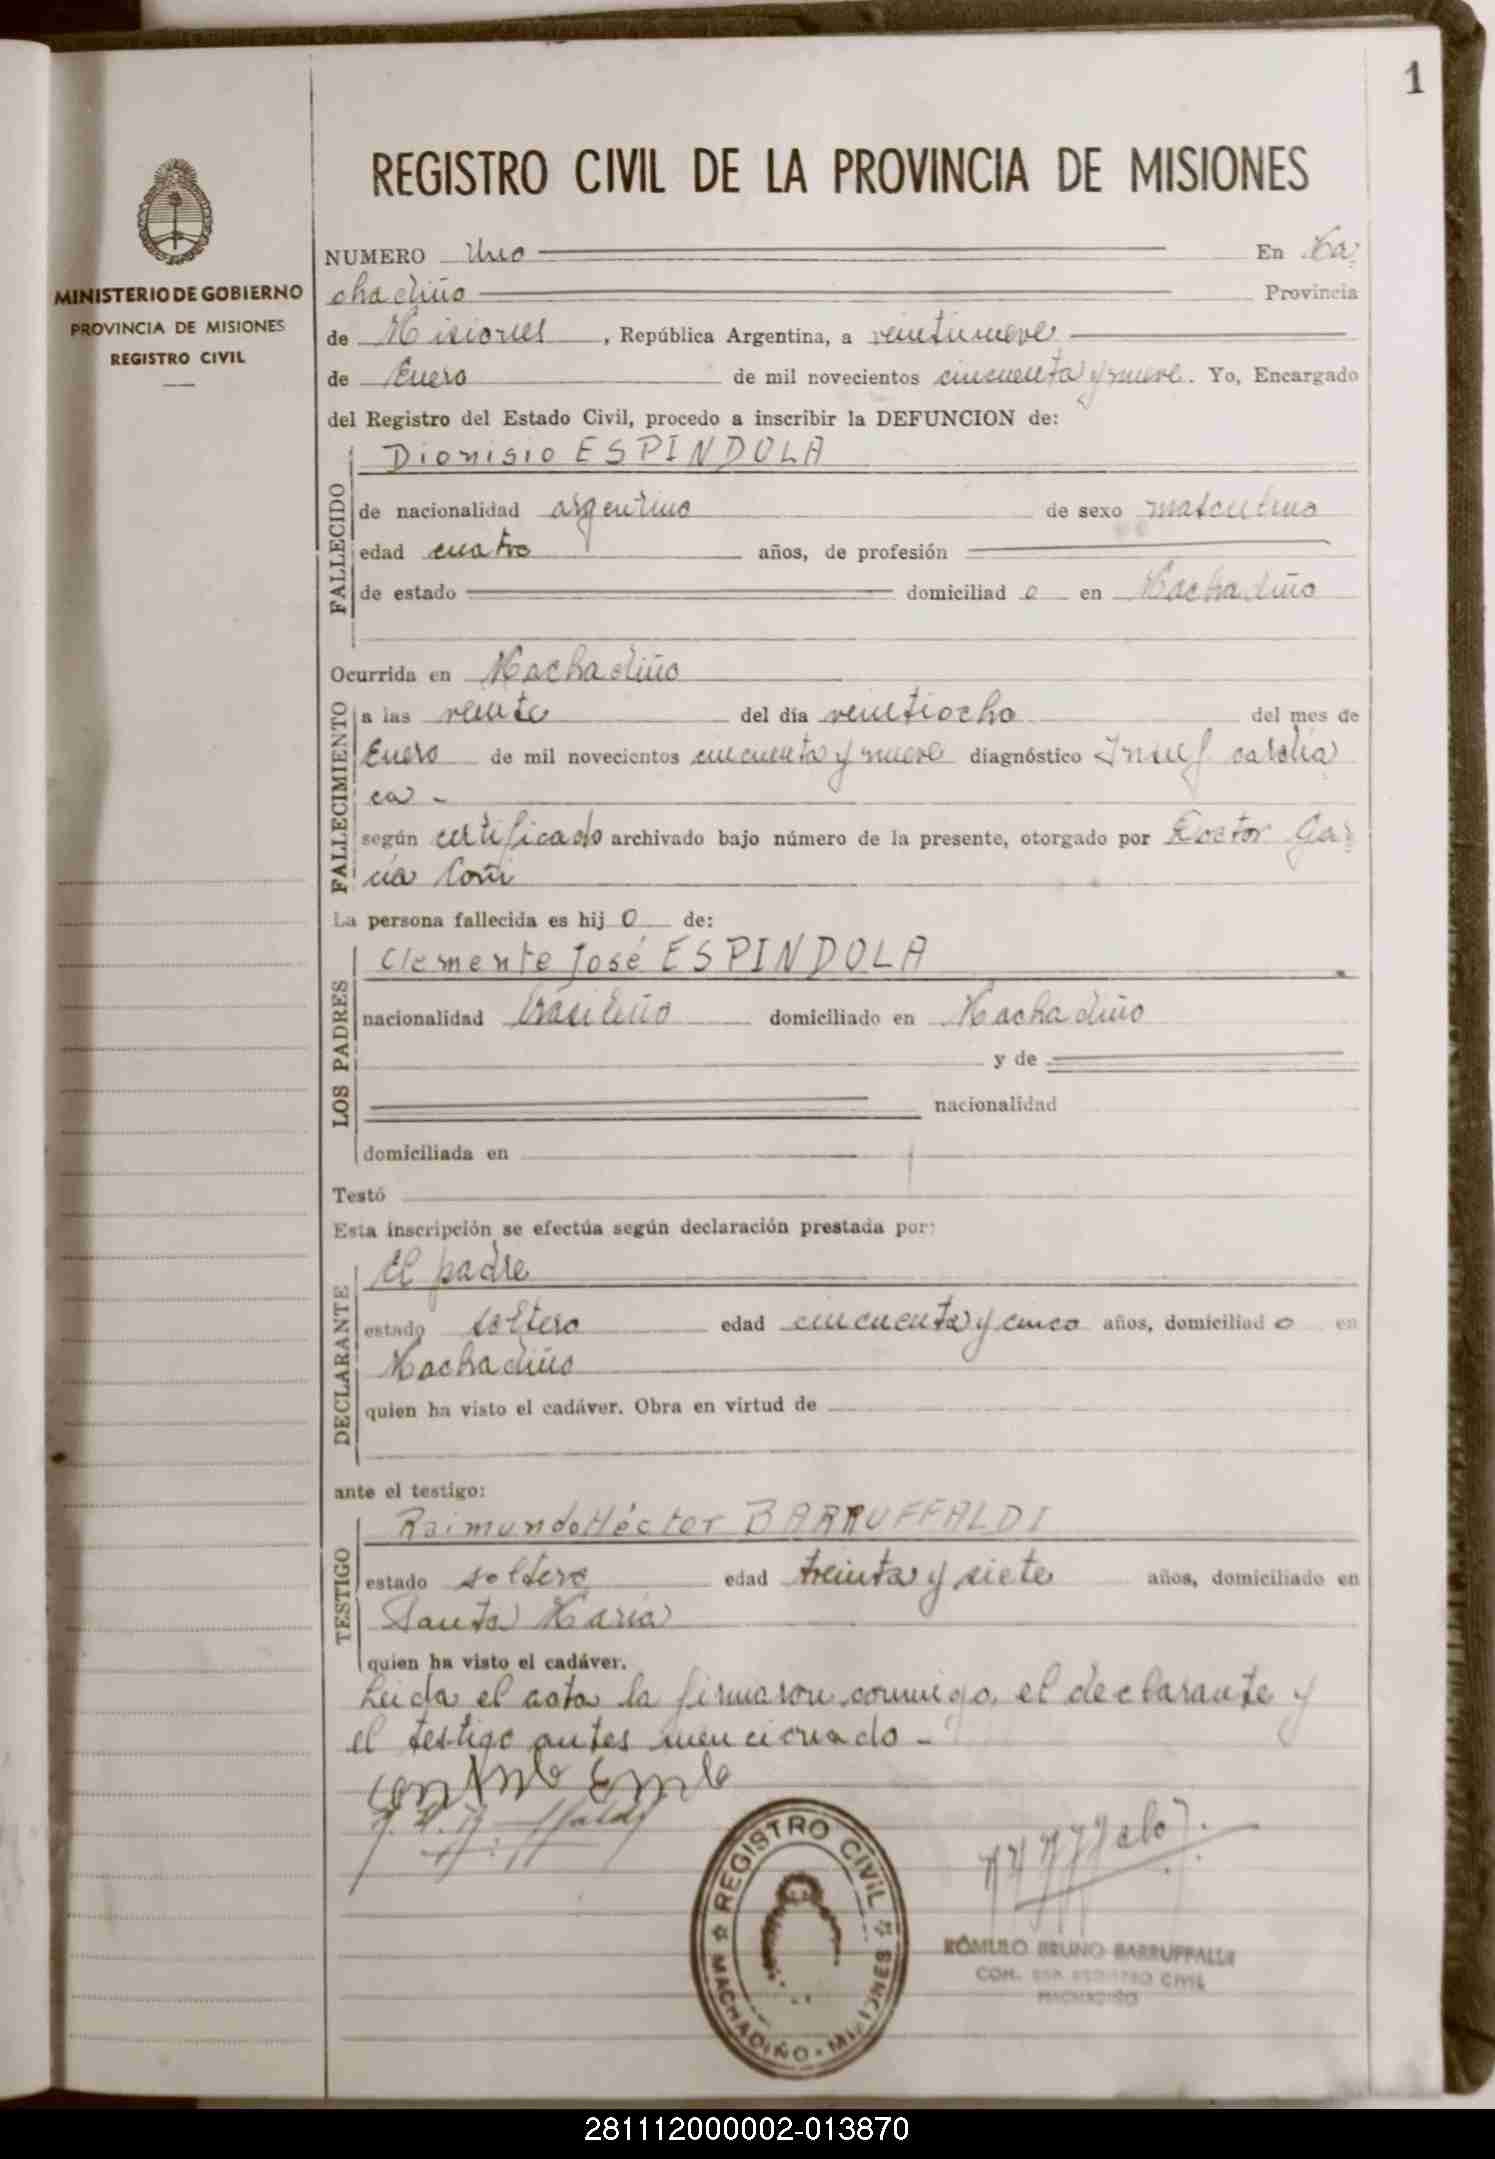 1
REGISTRO CIVIL DE LA PROVINCIA DE MISIONES
MINISTERIO DE GOBIERNO
PROVINCIA DE MISIONES
REGISTRO CIVIL
NUMERO Uno En Ma
chadiño Provincia
de Misiones, República Argentina, a veintinueve
de Enero de mil novecientos cincuenta y nueve. Yo, Encargado
del Registro del Estado Civil, procedo a inscribir la DEFUNCION de:
FALLECIDO
Dionisio ESPINDOLA
de nacionalidad argentino de sexo masculino
edad cuatro años, de profesión
de estado domiciliad o en Machadiño
Ocurrida en Machadiño
FALLECIMIENTO
a las veinte del día veintiocho del mes de
Enero de mil novecientos cincuenta y nueve diagnóstico Insuf cardia
ca -
según certificado archivado bajo número de la presente, otorgado por Doctor Gar
cia
La persona fallecida es hij o de:
LOS PADRES
Clemente José ESPINDOLA
nacionalidad brasileño domiciliado en Machadiño
y de
nacionalidad
domiciliada en
Testó
Esta inscripción se efectúa según declaración prestada por:
DECLARANTE
El padre
estado soltero edad cincuenta y cinco años, domiciliad o en
Machadiño
quien ha visto el cadáver. Obra en virtud de
ante el testigo:
TESTIGO
Raimundo Héctor BARRUFFALDI
estado soltero edad treinta y siete años, domiciliado en
Santa María
quien ha visto el cadáver.
Leida el acta la firmaron conmigo, el declarante y
el testigo antes mencionado -
REGISTRO CIVIL
MACHADIÑO - MISIONES
RÓMULO BRUNO BARRUFFALDI
REGISTRO CIVIL
MACHADIÑO
281112000002-013870